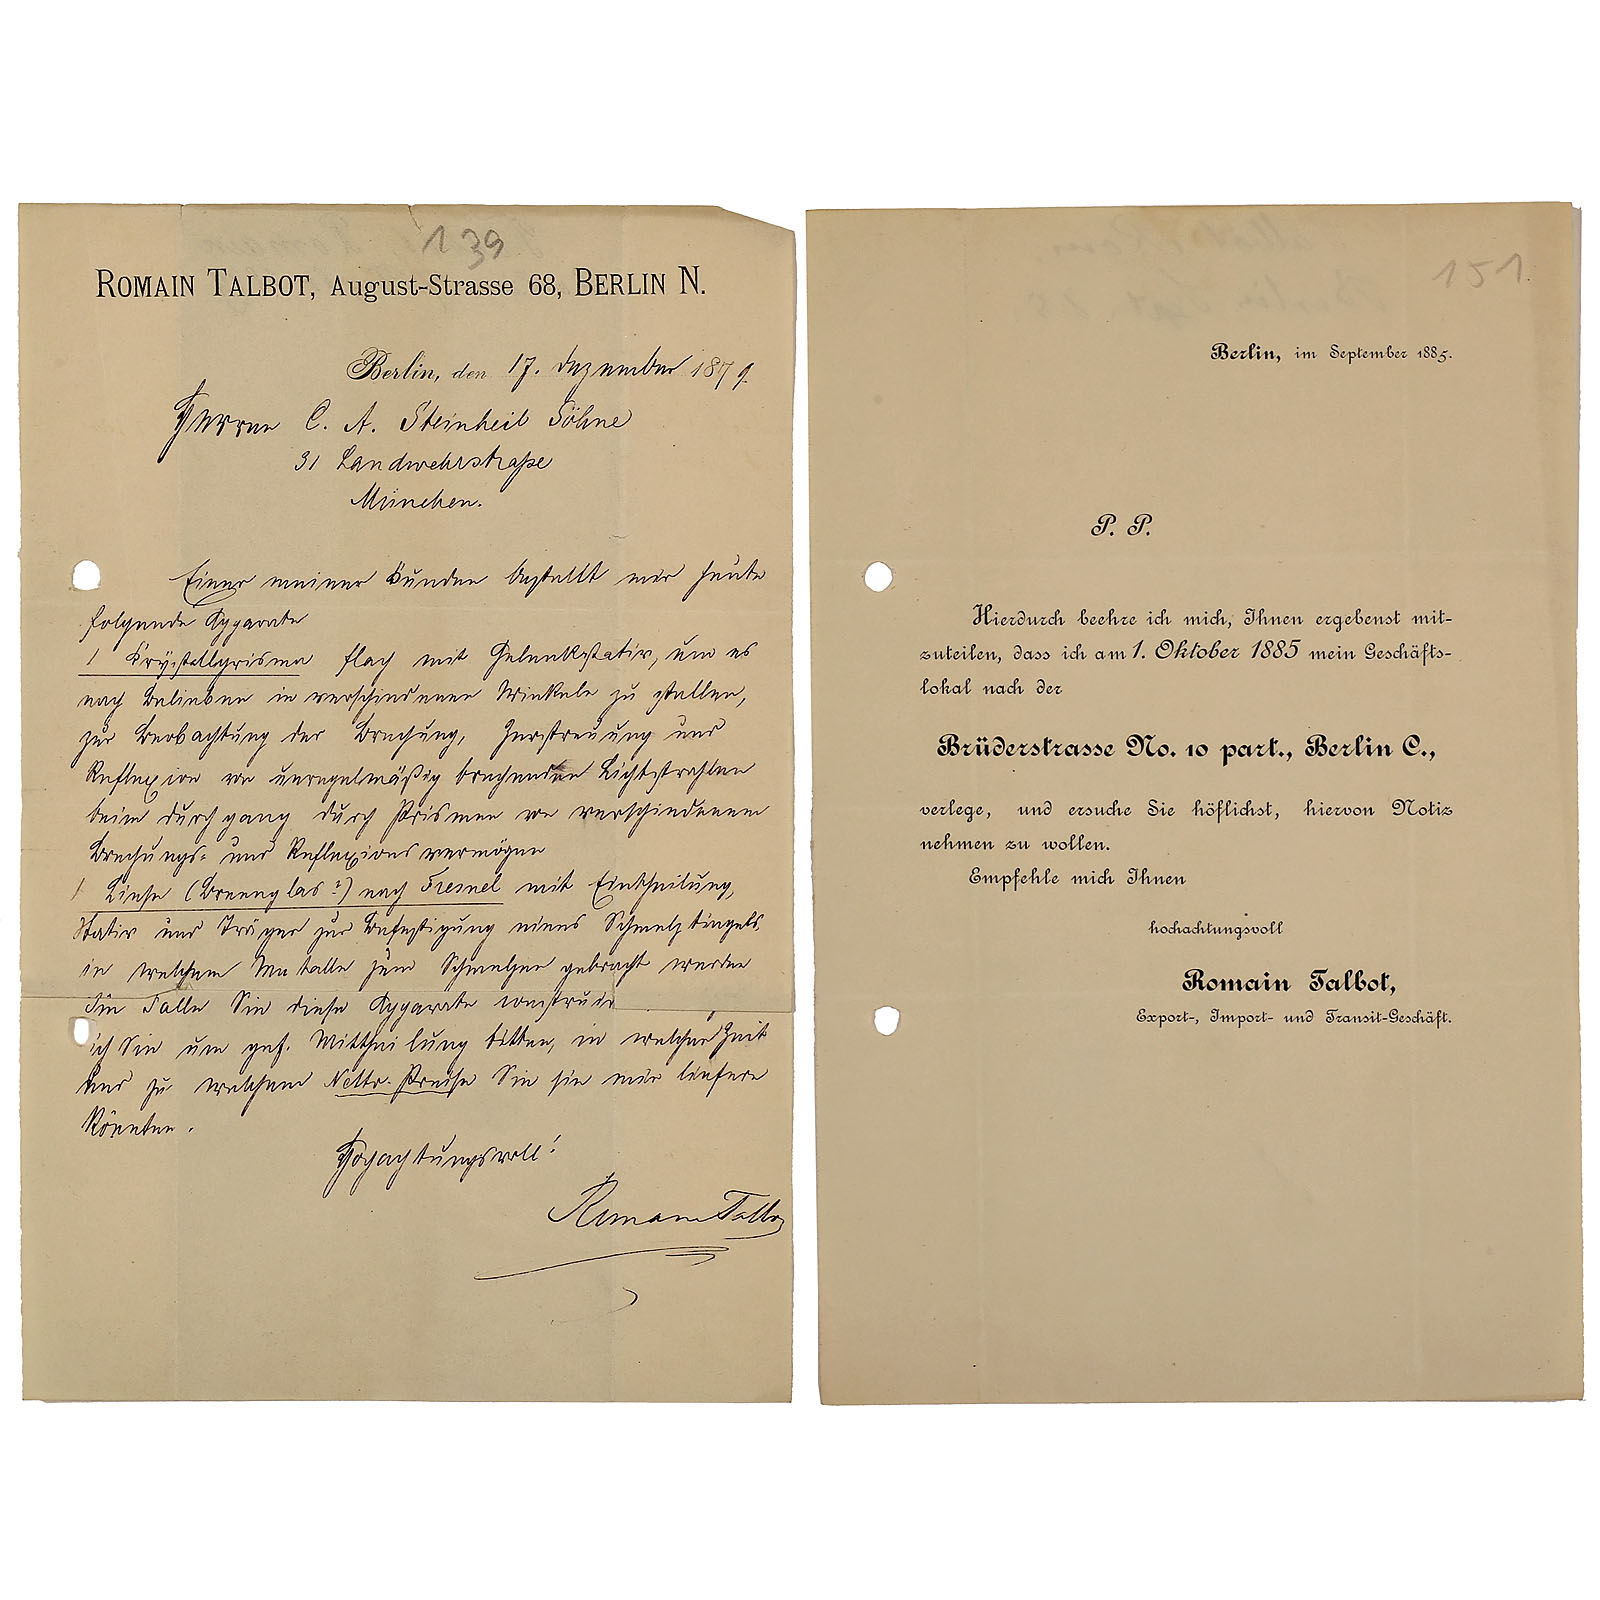 139
ROMAIN TALBOT, August-Strasse 68, BERLIN N.
Berlin, den 17. Dezember 1879.
Herren C. A. Steinheil Söhne
31 Landwehrstraße
München.
Einer meiner Kunden bestellt mir heute
folgende Apparate
1 Krystallprisma flach mit Gelenkstativ, um es
nach Belieben in verschiedene Winkel zu stellen,
zur Beobachtung der Brechung, Zerstreuung und
Reflexion von unregelmäßig brechenden Lichtstrahlen
beim Durchgang durch Prismen von verschiedenem
Brechungs- und Reflexionsvermögen
1 Linse (Brennglas?) nach Fresnel mit Eintheilung,
Stativ und Träger zur Befestigung eines Schmelztiegels,
in welchem Metalle zum Schmelzen gebracht werden
Im Falle Sie diese Apparate construir
ich Sie um gef. Mittheilung bitten, in welcher Zeit
und zu welchem Netto-Preise Sie sie mir liefern
könnten.
Hochachtungsvoll!
Romain Talbot
151.
Berlin, im September 1885.
P. P.
Hierdurch beehre ich mich, Ihnen ergebenst mit-
zuteilen, dass ich am 1. Oktober 1885 mein Geschäfts-
lokal nach der
Brüderstrasse No. 10 part., Berlin C.,
verlege, und ersuche Sie höflichst, hiervon Notiz
nehmen zu wollen.
Empfehle mich Ihnen
hochachtungsvoll
Romain Talbot,
Export-, Import- und Transit-Geschäft.